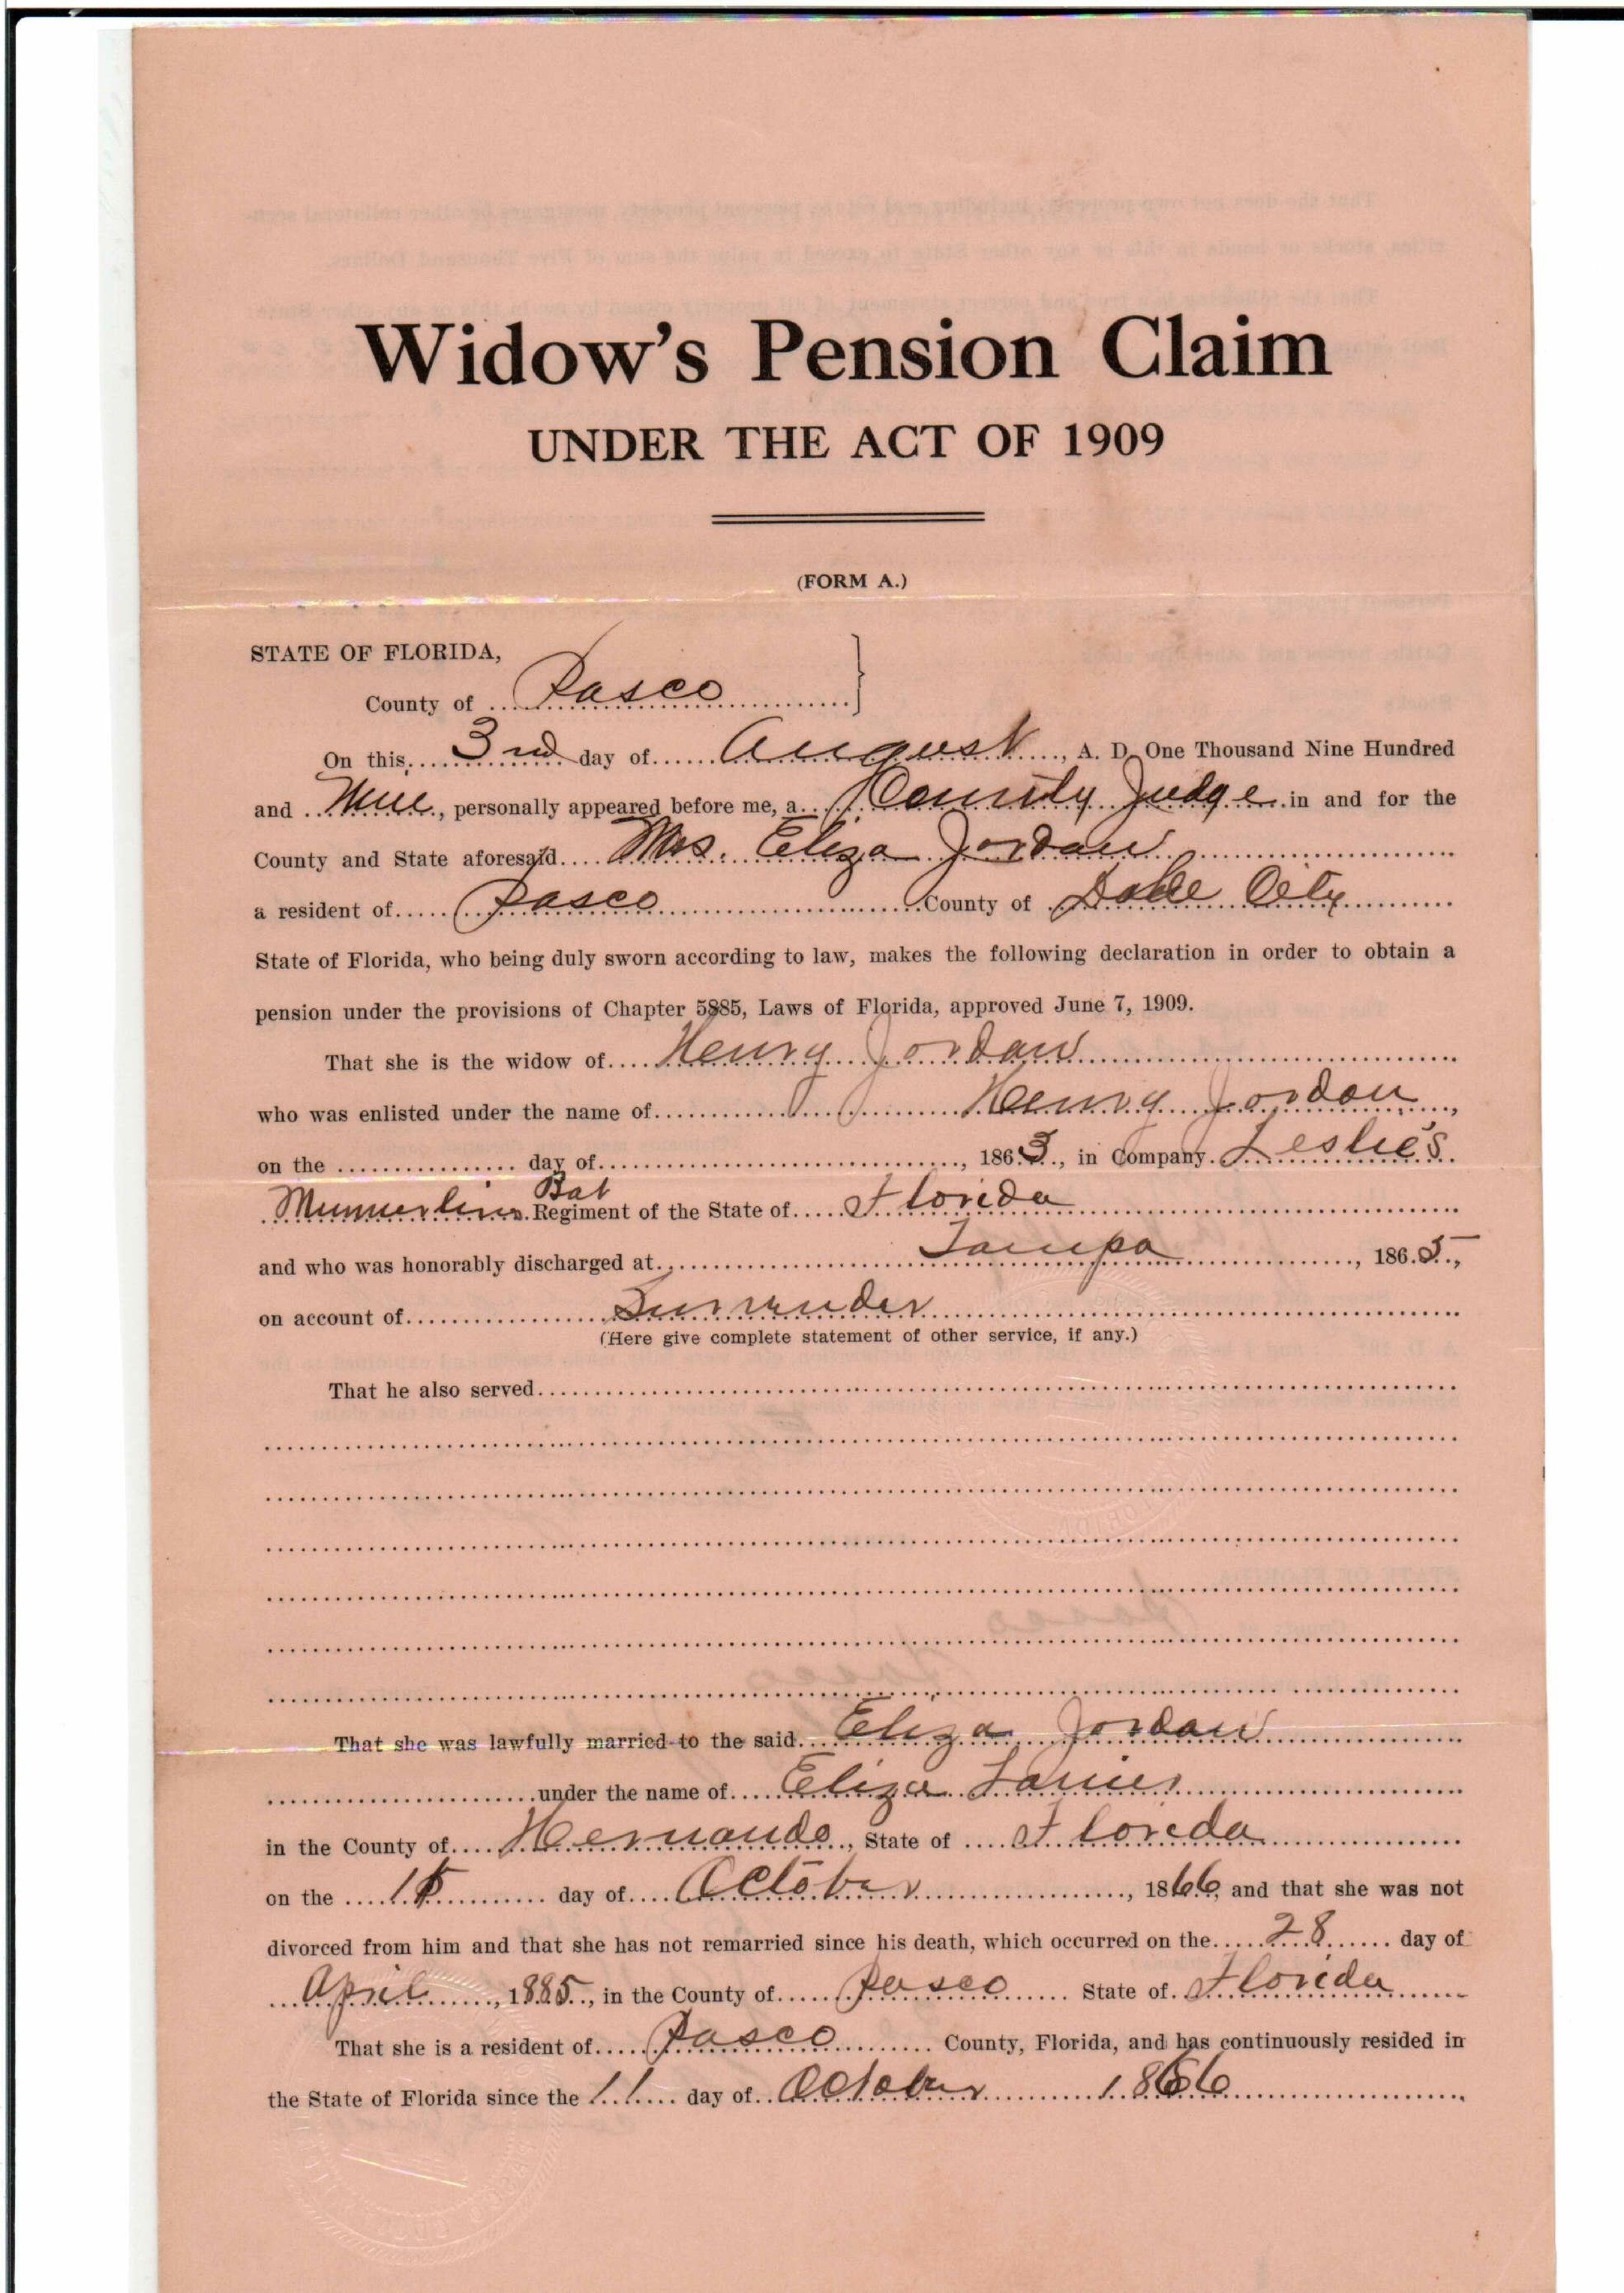 Widow's Pension Claim
UNDER THE ACT OF 1909
(FORM A.)
STATE OF FLORIDA,
County of Pasco
On this 3rd day of August, A. D. One Thousand Nine Hundred
and Nine, personally appeared before me, a County Judge in and for the
County and State aforesaid Mrs. Eliza Jordan
a resident of Pasco County of Dade City
State of Florida, who being duly sworn according to law, makes the following declaration in order to obtain a
pension under the provisions of Chapter 5885, Laws of Florida, approved June 7, 1909.
That she is the widow of Henry Jordan
who was enlisted under the name of Henry Jordan,
on the day of, 1863, in Company Leslie's
Munnerlins Bat Regiment of the State of Florida
and who was honorably discharged at Tampa, 1865,
on account of Surrunder
(Here give complete statement of other service, if any.)
That he also served
That she was lawfully married to the said Eliza Jordan
under the name of Eliza
in the County of Hernando, State of Florida
on the day of October, 1866, and that she was not
divorced from him and that she has not remarried since his death, which occurred on the 28 day of
April, 1885, in the County of Pasco State of Florida
That she is a resident of Pasco County, Florida, and has continuously resided in
the State of Florida since the 11 day of October 1866